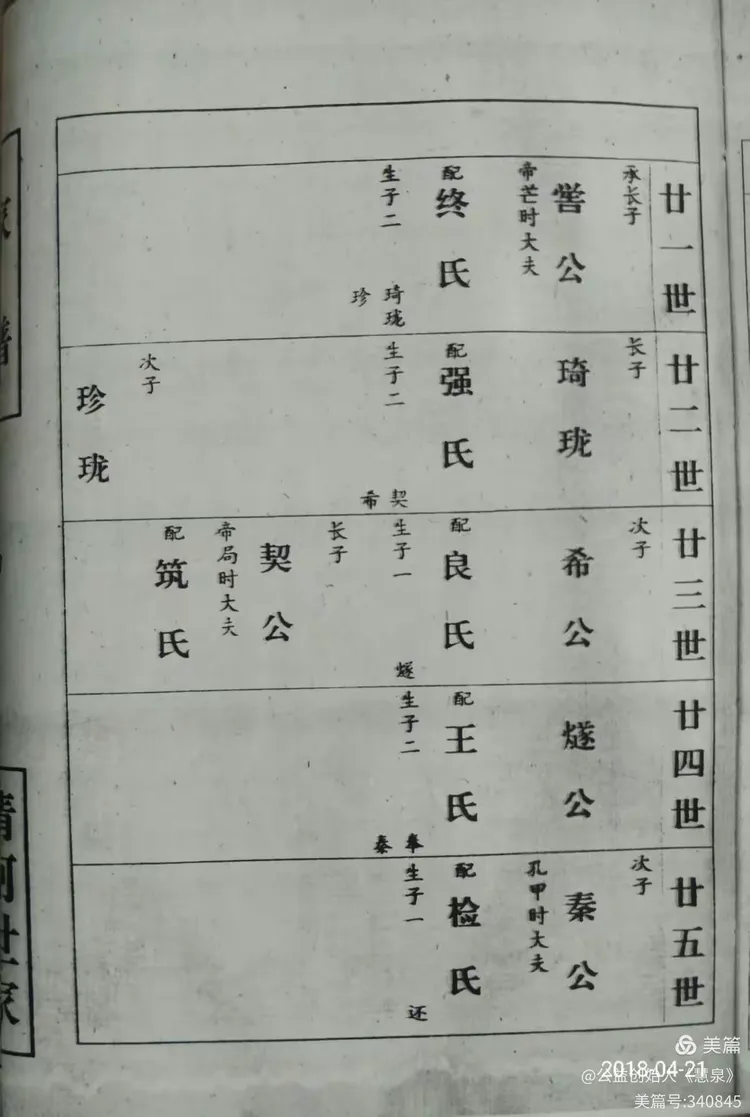 廿一世
承长子
喾公
帝芒时大夫
配
终氏
生子二
琦珑
珍
廿二世
长子
琦珑
配
强氏
生子二
契
希
次子
珍珑
廿三世
次子
希公
配
良氏
生子一
燧
长子
契公
帝局时大夫
配
筑氏
廿四世
燧公
配
王氏
生子二
秦
廿五世
次子
秦公
孔甲时大夫
配
检氏
生子一
还
清河世家
美篇
2018-04-21
@公益创始人《慧泉》
美篇号:340845